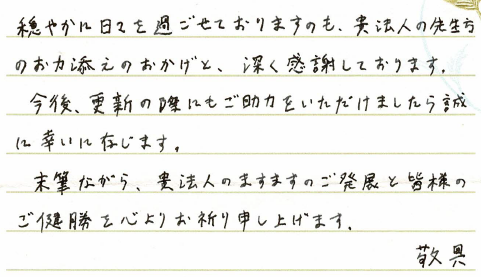 穏やかに日々を過ごせておりますのも、貴法人の先生方
のお力添えのおかげと、深く感謝しております。
今後、更新の際にもご助力をいただけましたら誠
に幸いに存じます。
末筆ながら、貴法人のますますのご発展と皆様の
ご健勝を心よりお祈り申し上げます。
敬具